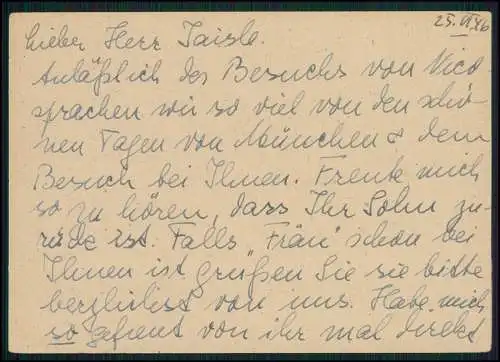 25. VI. 46
Lieber Herr Taisle.
Anläßlich des Besuchs von Vico
sprachen wir so viel von den schö-
nen Tagen von München & dem
Besuch bei Ihnen. Freute mich
so zu hören, dass Ihr Sohn zu-
rück ist. Falls "Frän" schon bei
Ihnen ist grüßen Sie sie bitte
herzlichst von uns. Habe mich
so gefreut von ihr mal direkt